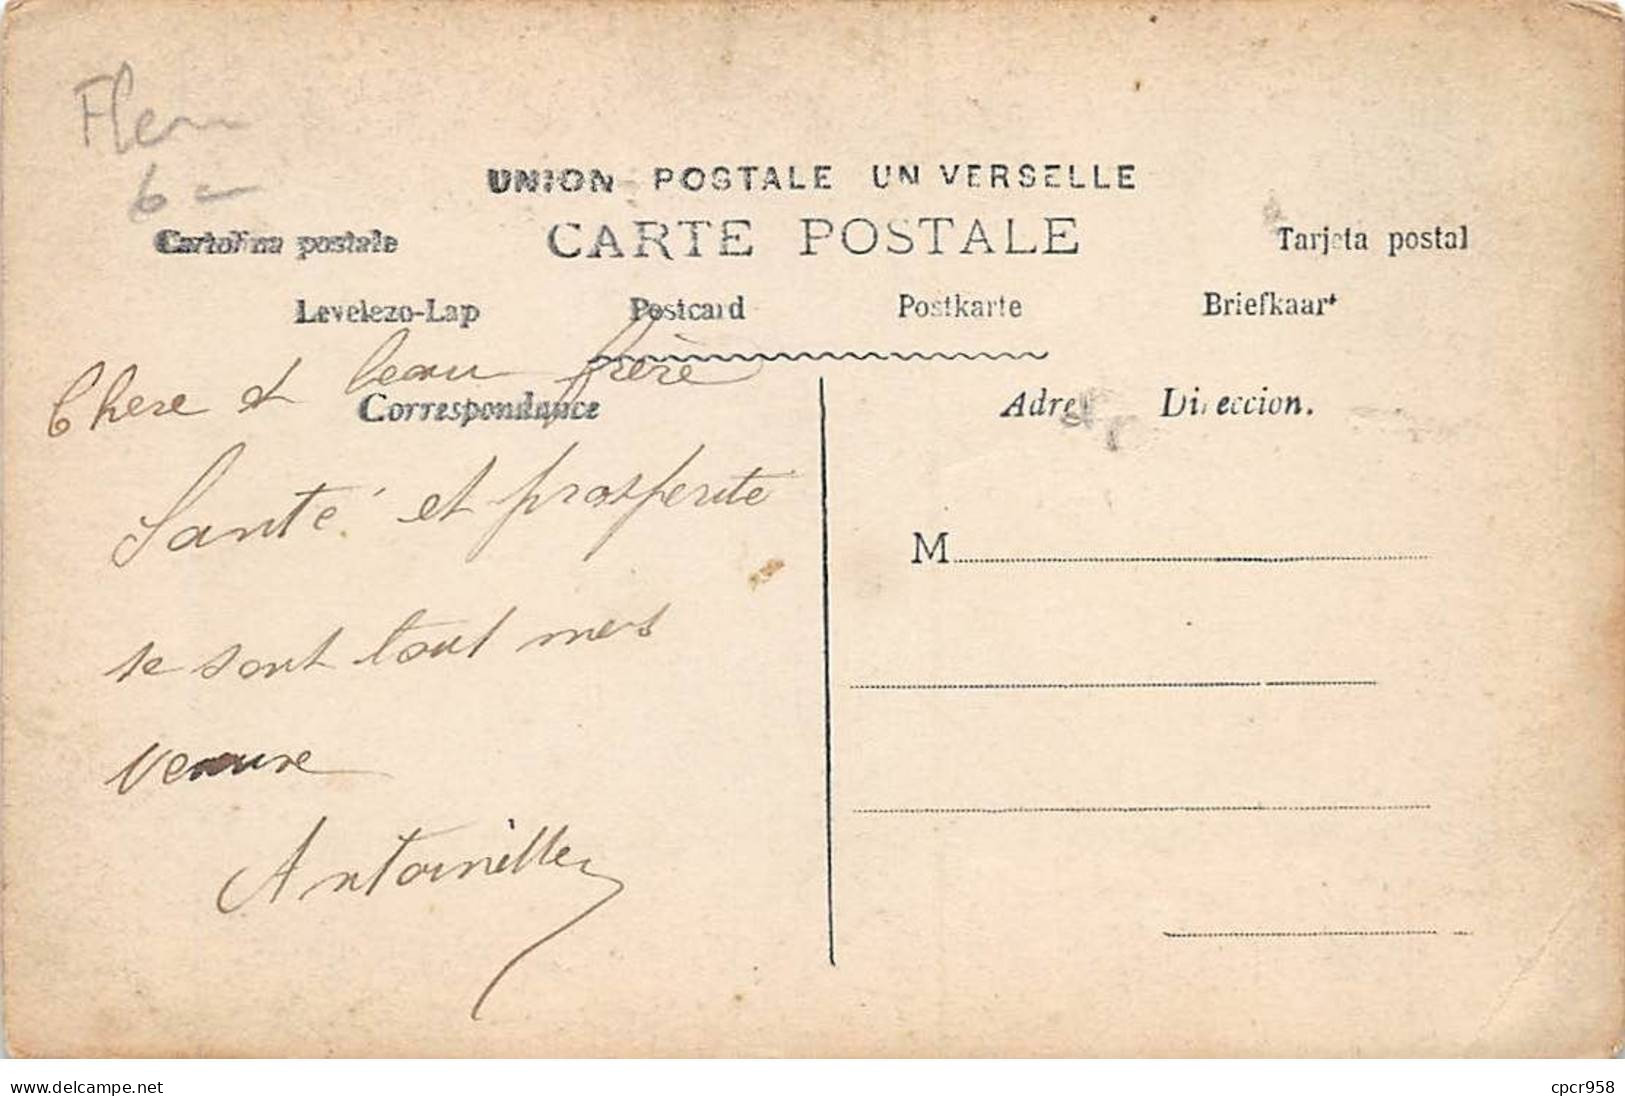 Fleur
6-
UNION POSTALE UN VERSELLE
Cartolina postale CARTE POSTALE Tarjeta postal
Levelezo-Lap Postcard Postkarte Briefkaart
Chere et beau frère
Correspondance
Adre Direccion.
Santé et prosperite
M
se sont tout mes
Antoinette
www.delcampe.net cpcr958